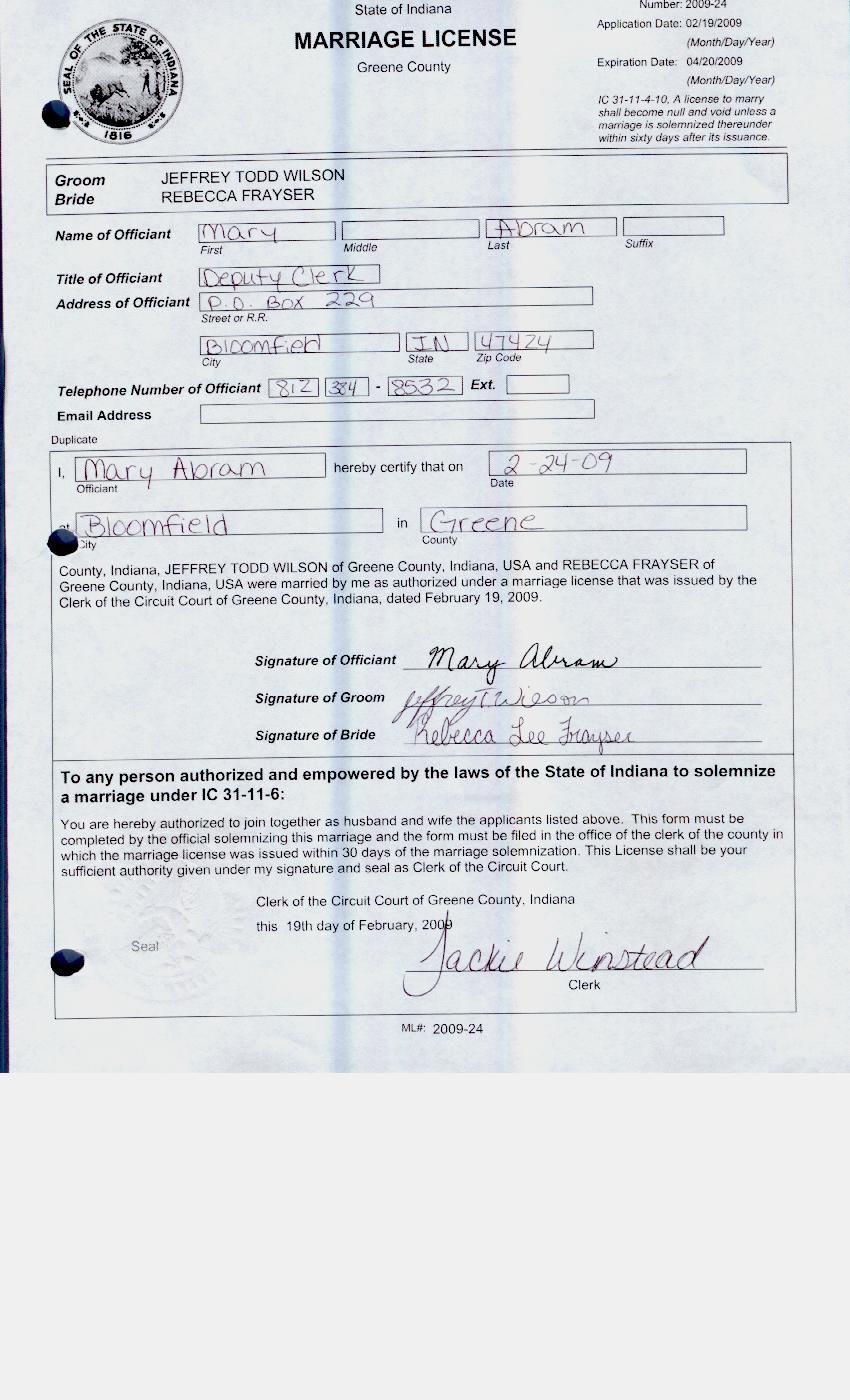 State of Indiana
Number: 2009-24
MARRIAGE LICENSE
Application Date: 02/19/2009
(Month/Day/Year)
Greene County
Expiration Date: 04/20/2009
(Month/Day/Year)
IC 31-11-4-10, A license to marry
shall become null and void unless a
marriage is solemnized thereunder
within sixty days after its issuance.
SEAL OF THE STATE OF INDIANA
1816
Groom JEFFREY TODD WILSON
Bride REBECCA FRAYSER
Name of Officiant Mary Abram
First Middle Last Suffix
Title of Officiant Deputy Clerk
Address of Officiant P.O. Box 229
Street or R.R.
Bloomfield IN 47424
City State Zip Code
Telephone Number of Officiant 812 384 - 8532 Ext.
Email Address
Duplicate
I, Mary Abram hereby certify that on 2-24-09
Officiant Date
at Bloomfield in Greene
City County
County, Indiana, JEFFREY TODD WILSON of Greene County, Indiana, USA and REBECCA FRAYSER of
Greene County, Indiana, USA were married by me as authorized under a marriage license that was issued by the
Clerk of the Circuit Court of Greene County, Indiana, dated February 19, 2009.
Signature of Officiant Mary Abram
Signature of Groom Jeffrey T Wilson
Signature of Bride Rebecca Lee Frayser
To any person authorized and empowered by the laws of the State of Indiana to solemnize
a marriage under IC 31-11-6:
You are hereby authorized to join together as husband and wife the applicants listed above. This form must be
completed by the official solemnizing this marriage and the form must be filed in the office of the clerk of the county in
which the marriage license was issued within 30 days of the marriage solemnization. This License shall be your
sufficient authority given under my signature and seal as Clerk of the Circuit Court.
Clerk of the Circuit Court of Greene County, Indiana
this 19th day of February, 2009
Seal
Jackie Winstead
Clerk
ML#: 2009-24